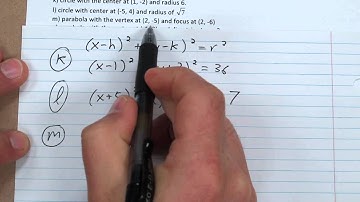 k) circle with the center at (1, -2) and radius 6.
l) circle with center at (-5, 4) and radius of √7
m) parabola with the vertex at (2, -5) and focus at (2, -6)
(x-h)² + (y-k)² = r²
k (x-1)² )² = 36
l (x+5) 7
m